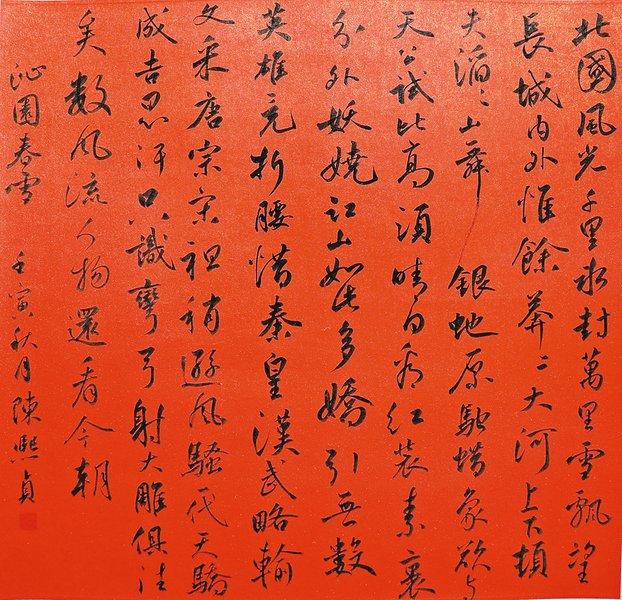 北國風光千里冰封萬里雪飄望
長城内外惟餘莽〻大河上下頓
失滔〻山舞銀蛇原馳蜡象欲与
天公試比高須晴日看红裝素裹
分外妖嬈江山如此多嬌引無數
英雄竞折腰惜秦皇漢武略輸
文采唐宗宋祖稍遜風騷一代天驕
成吉思汗只識彎弓射大雕俱往
矣數风流人物還看今朝
沁園春雪 壬寅秋月陳熙貞